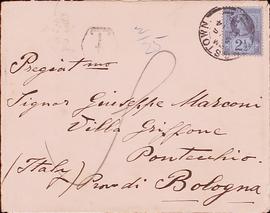 T
TOWN
2½
Pregiatmo
Signor Giuseppe Marconi
Villa Griffone
Pontecchio.
(Italy) Prov di Bologna